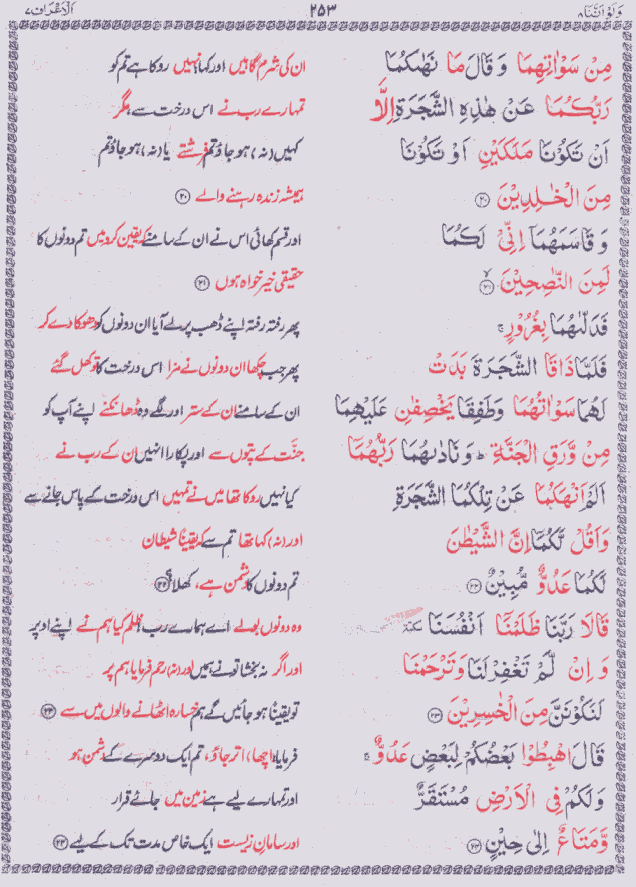 وَلَوْ اَنَّنَا ۸
۲۵۳
اَلْاَعْرَاف ۷
مِنْ سَوْاٰتِهِمَا وَ قَالَ مَا نَهٰىكُمَا
ان کی شرم گاہیں اور کہا نہیں روکا ہے تم کو
رَبُّكُمَا عَنْ هٰذِهِ الشَّجَرَةِ اِلَّاۤ
تمہارے رب نے اس درخت سے، مگر
اَنْ تَكُوْنَا مَلَكَيْنِ اَوْ تَكُوْنَا
کہیں (نہ) ہو جاؤ تم فرشتے یا (نہ) ہو جاؤ تم
مِنَ الْخٰلِدِيْنَ ۲۰
ہمیشہ زندہ رہنے والے ۲۰
وَ قَاسَمَهُمَاۤ اِنِّيْ لَكُمَا
اور قسم کھائی اس نے ان کے سامنے کہ یقین کرو میں تم دونوں کا
لَمِنَ النّٰصِحِيْنَ ۲۱
حقیقی خیر خواہ ہوں ۲۱
فَدَلّٰىهُمَا بِغُرُوْرٍ ۚ
پھر رفتہ رفتہ اپنے ڈھب پر لے آیا ان دونوں کو دھوکا دے کر
فَلَمَّا ذَاقَا الشَّجَرَةَ بَدَتْ
پھر جب چکھا ان دونوں نے مزا اس درخت کا تو کھل گئے
لَهُمَا سَوْاٰتُهُمَا وَ طَفِقَا يَخْصِفٰنِ عَلَيْهِمَا
ان کے سامنے ان کے ستر اور لگے وہ ڈھانکنے اپنے آپ کو
مِنْ وَّرَقِ الْجَنَّةِ ؕ وَ نَادٰىهُمَا رَبُّهُمَاۤ
جنّت کے پتوں سے اور پکارا انہیں ان کے رب نے
اَلَمْ اَنْهَكُمَا عَنْ تِلْكُمَا الشَّجَرَةِ
کیا نہیں روکا تھا میں نے تمہیں اس درخت کے پاس جانے سے
وَ اَقُلْ لَّكُمَاۤ اِنَّ الشَّيْطٰنَ
اور (نہ) کہا تھا تم سے کہ یقیناً شیطان
لَكُمَا عَدُوٌّ مُّبِيْنٌ ۲۲
تم دونوں کا دشمن ہے، کھلا؟ ۲۲
قَالَا رَبَّنَا ظَلَمْنَاۤ اَنْفُسَنَا سكتة
وہ دونوں بولے اے ہمارے رب! ظلم کیا ہم نے اپنے اوپر
وَ اِنْ لَّمْ تَغْفِرْ لَنَا وَ تَرْحَمْنَا
اور اگر نہ بخشا تو نے ہمیں اور (نہ) رحم فرمایا ہم پر
لَنَكُوْنَنَّ مِنَ الْخٰسِرِيْنَ ۲۳
تو یقیناً ہو جائیں گے ہم خسارہ اٹھانے والوں میں سے ۲۳
قَالَ اهْبِطُوْا بَعْضُكُمْ لِبَعْضٍ عَدُوٌّ ۚ
فرمایا (اچھا) اتر جاؤ، تم ایک دوسرے کے دشمن ہو
وَ لَكُمْ فِي الْاَرْضِ مُسْتَقَرٌّ
اور تمہارے لیے ہے زمین میں جائے قرار
وَّ مَتَاعٌ اِلٰى حِيْنٍ ۲۴
اور سامان زیست ایک خاص مدت تک کے لیے ۲۴